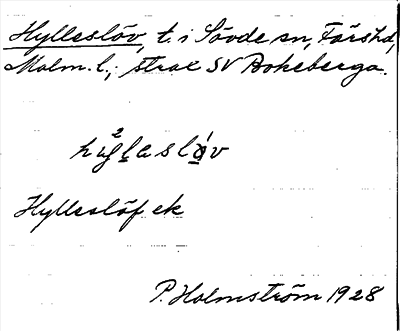 Hylleslöv, t. i Sövde sn, Färs hd,
Malm. l.; strax SV Bokeberga.
Hylleslöf ek
P. Holmström 1928